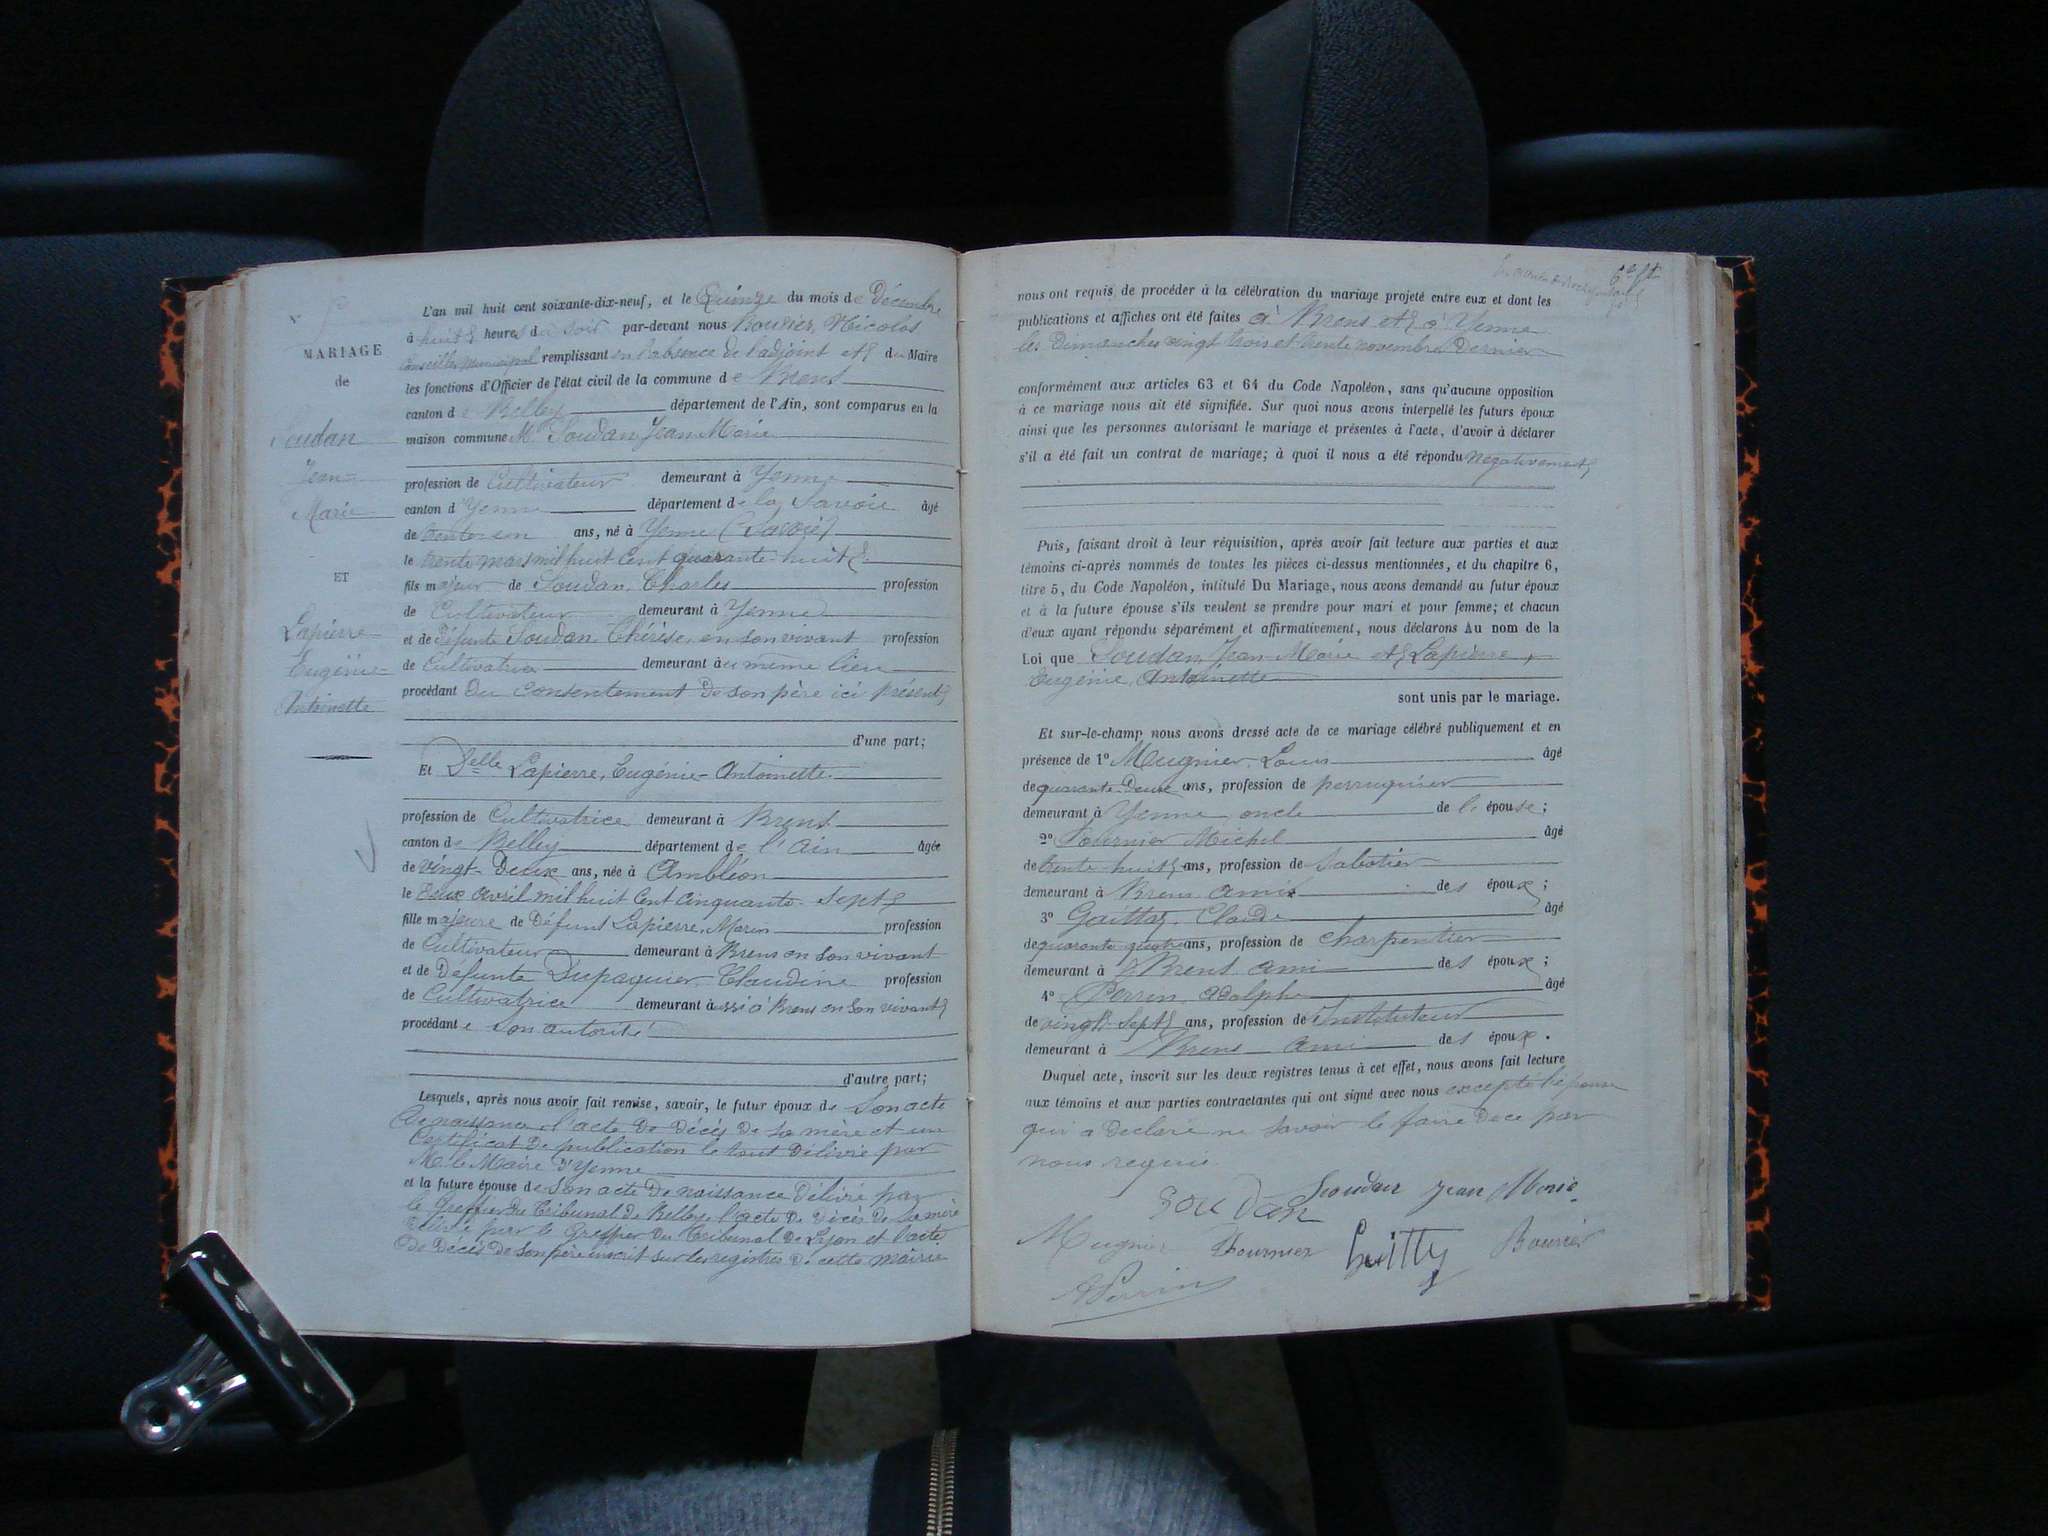 MARIAGE
de
Soudan
Jean
Marie
ET
Lapierre
Eugénie
Antoinette
L'an mil huit cent soixante-dix-neuf, et le Quinze du mois de Décembre
à huit heures du soir par-devant nous Bouvier, Nicolas
Conseiller Municipal remplissant en l'absence de l'adjoint et du Maire
les fonctions d'Officier de l'état civil de la commune de Brens
canton de Belley département de l'Ain, sont comparus en la
maison commune M. Soudan Jean Marie
profession de Cultivateur demeurant à Yenne
canton d'Yenne département de la Savoie âgé
de trente un ans, né à Yenne (Savoie)
le trente mars mil huit Cent quarante-huit
fils majeur de Soudan, Charles profession
de Cultivateur demeurant à Yenne
et de défunte Soudan, Thérèse, en son vivant profession
de Cultivatrice demeurant au même lieu
procédant du consentement de son père ici présent
d'une part;
Et Delle Lapierre, Eugénie-Antoinette
profession de Cultivatrice demeurant à Brens
canton de Belley département de l'Ain âgée
de vingt-Deux ans, née à Ambléon
le deux avril mil huit Cent cinquante-sept
fille majeure de Défunt Lapierre, Marin profession
de Cultivateur demeurant à Brens en son vivant
et de Défunte Dupaquier Claudine profession
de Cultivatrice demeurant aussi à Brens en son vivant
procédante son autorité
d'autre part;
Lesquels, après nous avoir fait remise, savoir, le futur époux de Son acte
de naissance, l'acte de décès de sa mère et un
Certificat de publication le tout délivré par
M. le Maire d'Yenne
et la future épouse de Son acte de naissance délivré par
le Greffier du tribunal de Belley, l'acte de décès de sa mère
délivré par le Greffier du tribunal de Lyon et l'acte
de décès de son père inscrit sur les registres de cette mairie
nous ont requis de procéder à la célébration du mariage projeté entre eux et dont les
publications et affiches ont été faites à Brens et à Yenne
les Dimanches vingt trois et trente novembre Dernier
conformément aux articles 63 et 64 du Code Napoléon, sans qu'aucune opposition
à ce mariage nous ait été signifiée. Sur quoi nous avons interpellé les futurs époux
ainsi que les personnes autorisant le mariage et présentes à l'acte, d'avoir à déclarer
s'il a été fait un contrat de mariage; à quoi il nous a été répondu négativement
Puis, faisant droit à leur réquisition, après avoir fait lecture aux parties et aux
témoins ci-après nommés de toutes les pièces ci-dessus mentionnées, et du chapitre 6,
titre 5, du Code Napoléon, intitulé Du Mariage, nous avons demandé au futur époux
et à la future épouse s'ils veulent se prendre pour mari et pour femme; et chacun
d'eux ayant répondu séparément et affirmativement, nous déclarons Au nom de la
Loi que Soudan, Jean Marie et Lapierre,
Eugénie, Antoinette
sont unis par le mariage.
Et sur-le-champ nous avons dressé acte de ce mariage célébré publiquement et en
présence de 1° Mugnier, Louis âgé
de quarante-Deux ans, profession de perruquier
demeurant à Yenne oncle de l'épouse;
2° Fournier Michel âgé
de trente-huit ans, profession de sabotier
demeurant à Brens ami des époux;
3° Claude âgé
de quarante quatre ans, profession de charpentier
demeurant à Brens ami des époux;
4° Perrin Adolphe âgé
de vingt-sept ans, profession de Instituteur
demeurant à Brens ami des époux.
Duquel acte, inscrit sur les deux registres tenus à cet effet, nous avons fait lecture
aux témoins et aux parties contractantes qui ont signé avec nous excepté l'épouse
qui a déclaré ne savoir le faire de ce par
nous requis.
Soudan Soudan Jean Marie
Mugnier Fournier Guitty Bouvier
A Perrin